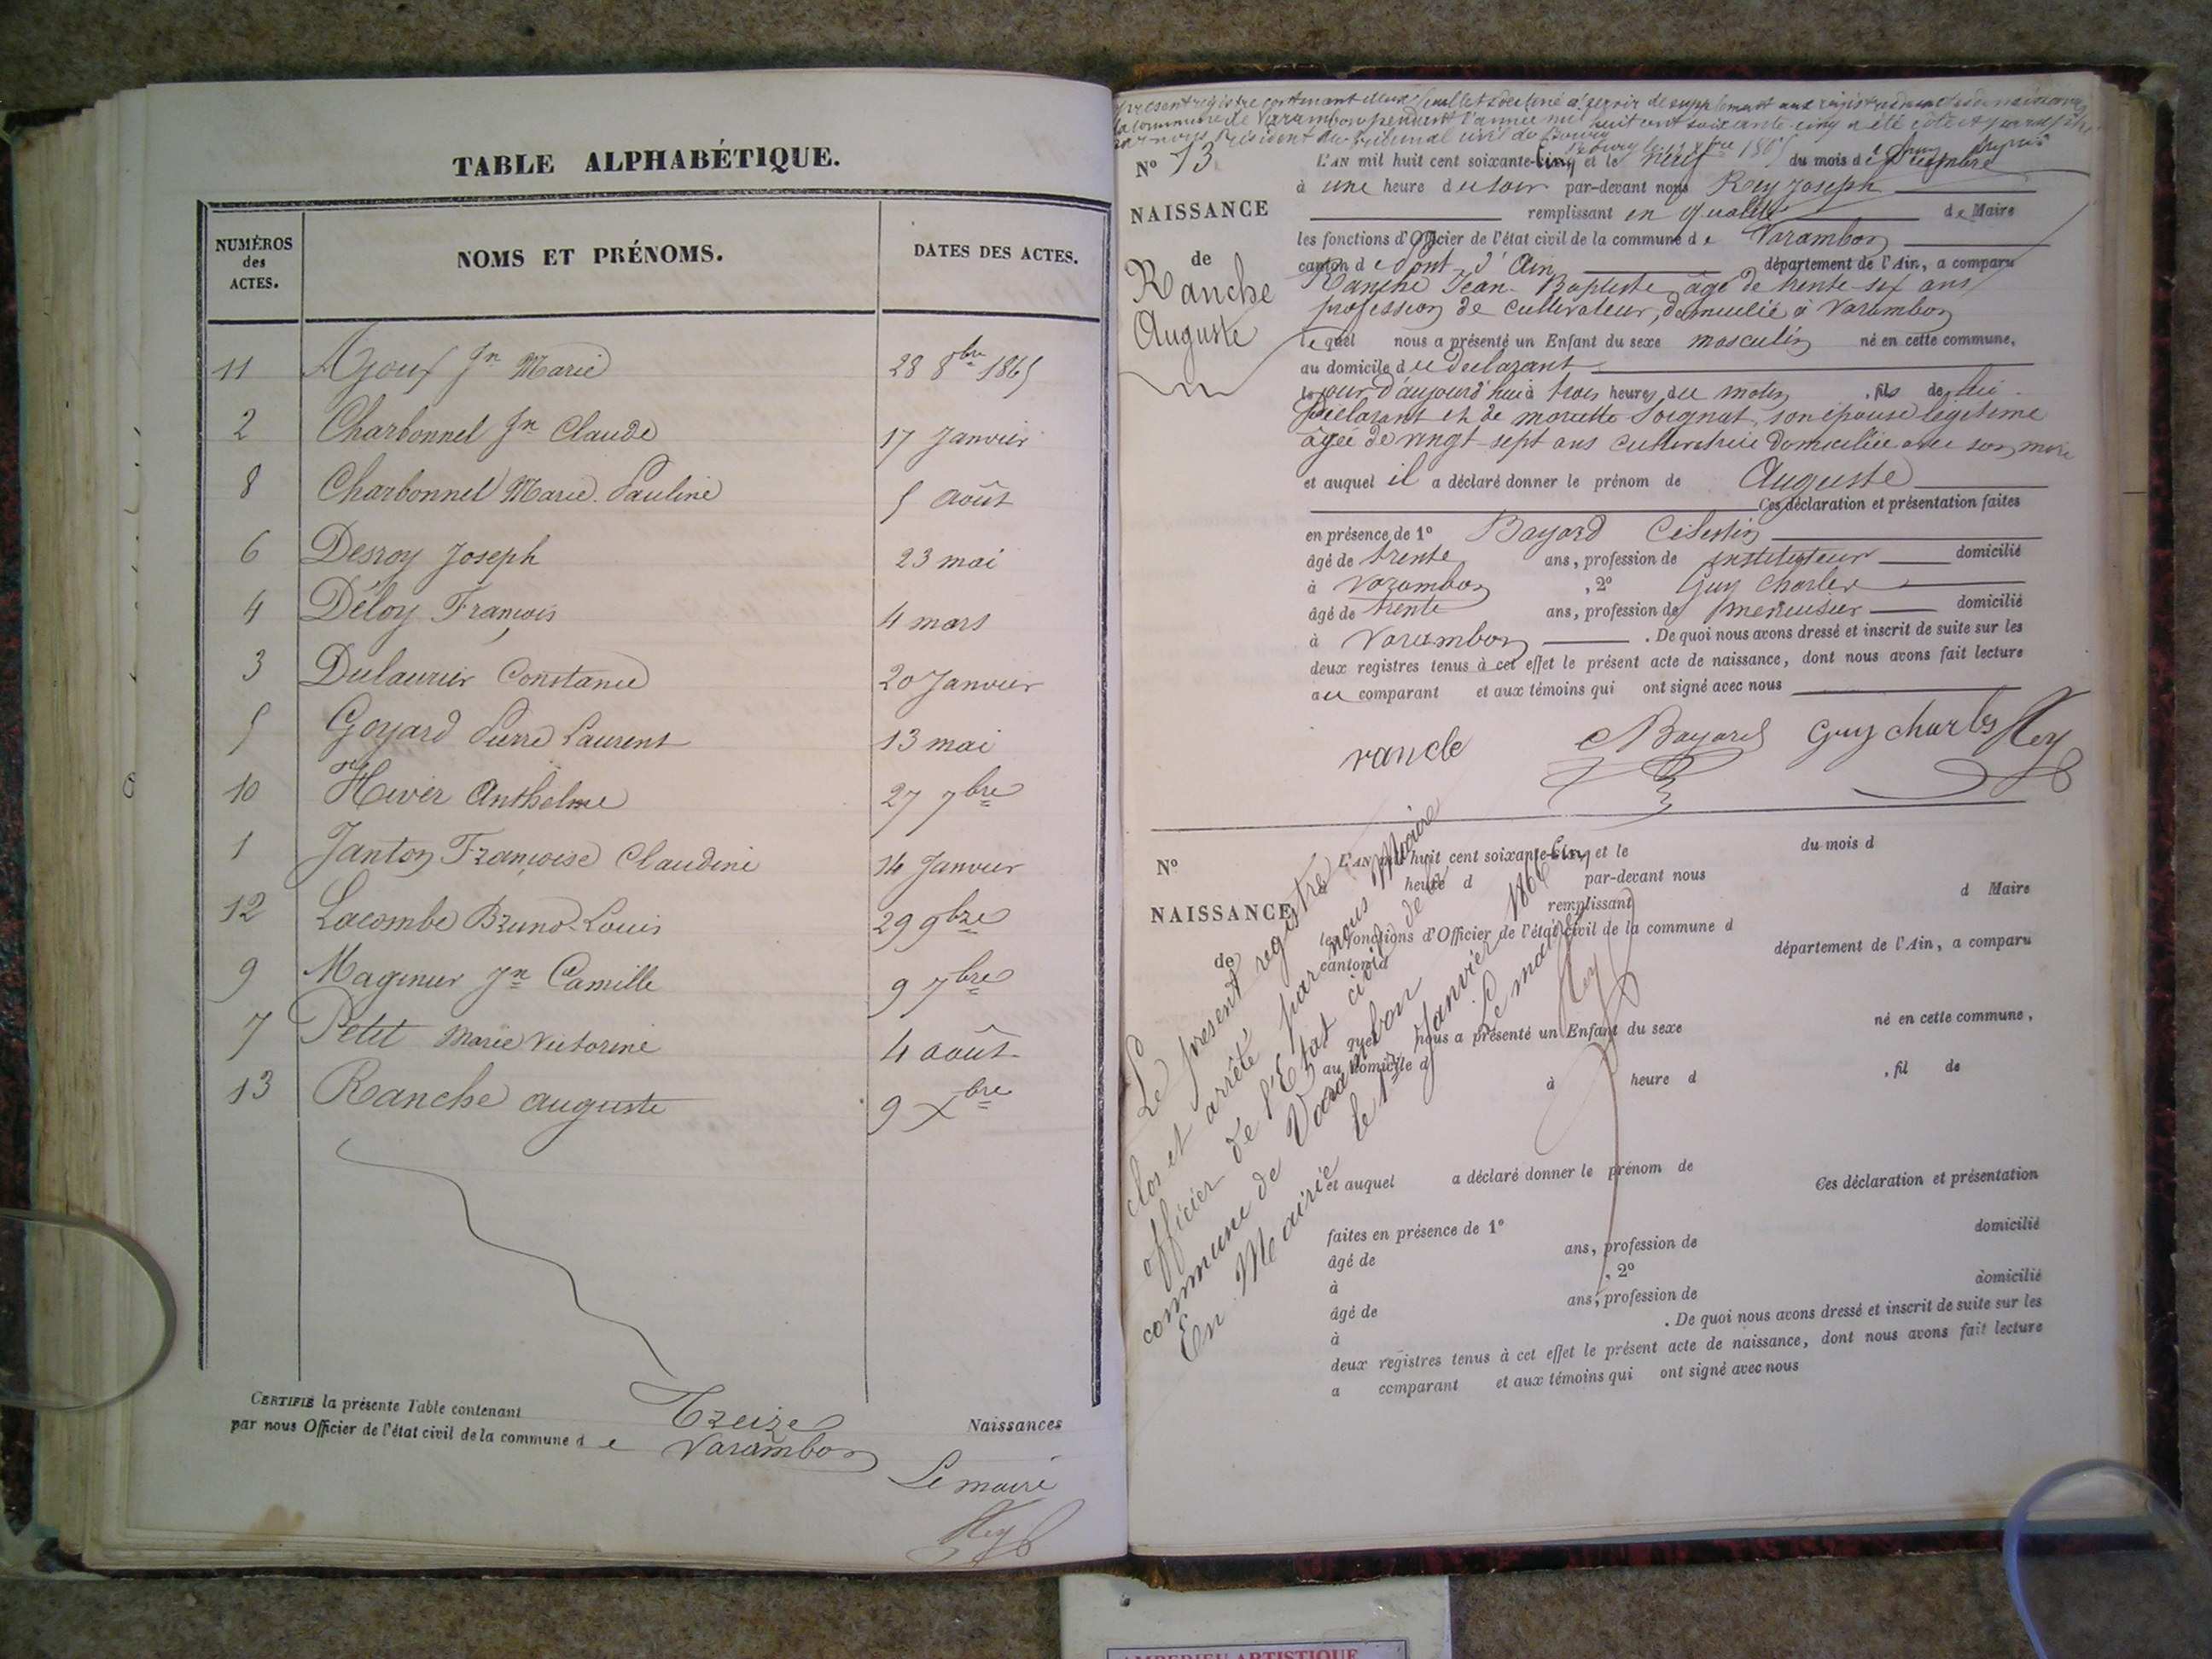 TABLE ALPHABÉTIQUE.
NUMÉROS des ACTES.
NOMS ET PRÉNOMS.
DATES DES ACTES.
11 Jn Marie 28 8bre 1865
2 Charbonnel Jn Claude 17 Janvier
8 Charbonnel Marie Pauline 5 août
6 Desroy Joseph 23 mai
4 Déloy François 4 mars
3 Dulaurier Constance 20 Janvier
5 Goyard Pierre Laurent 13 mai
10 Hiver Anthelme 27 7bre
1 Janton Françoise Claudine 14 Janvier
12 Lacombe Bruno-Louis 29 9bre
9 Magnin Jn Camille 9 7bre
7 Petit Marie Victorine 4 août
13 Ranche auguste 9 Xbre
CERTIFIÉ la présente Table contenant Treize Naissances
par nous Officier de l'état civil de la commune de Varambon
Le maire
Rey
présent registre contenant deux feuillets destiné à servir de supplément aux registres
la commune de Varambon pendant l'année mil huit cent soixante-cinq a été coté et paraphé
par nous Président du tribunal civil de Bourg
No 13
NAISSANCE
de
Ranche
Auguste
L'AN mil huit cent soixante-Cinq et le neuf du mois de Décembre
à une heure du soir par-devant nous Rey Joseph
remplissant en qualité de Maire
les fonctions d'Officier de l'état civil de la commune de Varambon
canton de Pont-d'Ain département de l'Ain, a comparu
Ranche Jean-Baptiste, âgé de trente-six ans
profession de cultivateur, domicilié à Varambon
lequel nous a présenté un Enfant du sexe masculin né en cette commune,
au domicile du déclarant
le jour d'aujourd'hui à trois heures du matin, fils de lui
déclarant et de mariette Soignat, son épouse légitime
âgée de vingt-sept ans cultivatrice domiciliée avec son mari
et auquel il a déclaré donner le prénom de Auguste
Ces déclaration et présentation faites
en présence de 1° Bayard Célestin
âgé de trente ans, profession de instituteur domicilié
à Varambon, 2° Guy Charles
âgé de trente ans, profession de menuisier domicilié
à Varambon. De quoi nous avons dressé et inscrit de suite sur les
deux registres tenus à cet effet le présent acte de naissance, dont nous avons fait lecture
au comparant et aux témoins qui ont signé avec nous
ranche Bayard Guy charles Rey
No
NAISSANCE
de
L'AN mil huit cent soixante-Cinq et le du mois d
heure d par-devant nous
remplissant d Maire
les fonctions d'Officier de l'état civil de la commune d
canton d département de l'Ain, a comparu
quel nous a présenté un Enfant du sexe né en cette commune,
au domicile d
à heure d , fil de
et auquel a déclaré donner le prénom de
Ces déclaration et présentation
faites en présence de 1°
âgé de ans, profession de domicilié
à , 2°
âgé de ans, profession de domicilié
à . De quoi nous avons dressé et inscrit de suite sur les
deux registres tenus à cet effet le présent acte de naissance, dont nous avons fait lecture
a comparant et aux témoins qui ont signé avec nous
Le présent registre
clos et arrêté par nous Maire
officier de l'État civil de la
commune de Varambon
En Mairie le 1er Janvier 1866
Le maire
Rey
AMBERIEU ARTISTIQUE